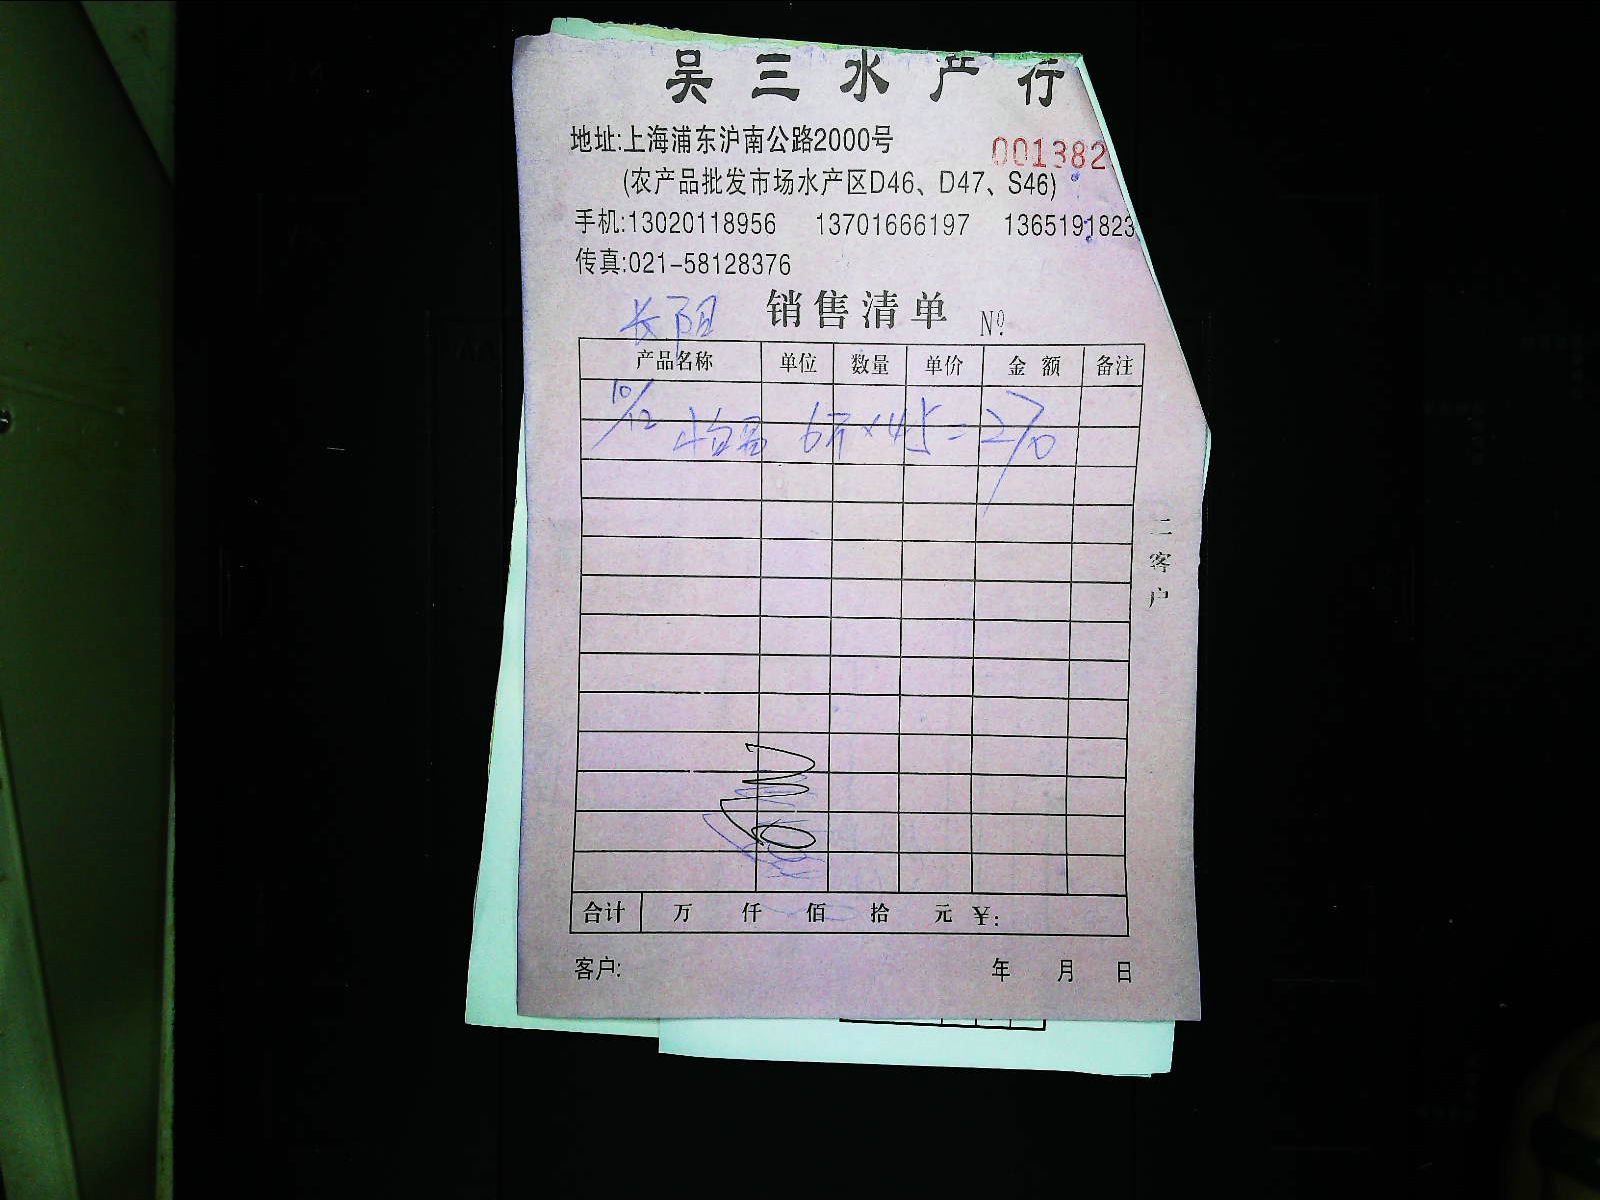 吴三水产行
地址:上海浦东沪南公路2000号
001382
(农产品批发市场水产区D46、D47、S46)
手机:13020118956 13701666197 1365191823
传真:021-58128376
长阳 销售清单 Nº
产品名称 单位 数量 单价 金额 备注
10/12 6斤×45=270
二客户
合计 万 仟 佰 拾 元 ¥:
客户: 年 月 日